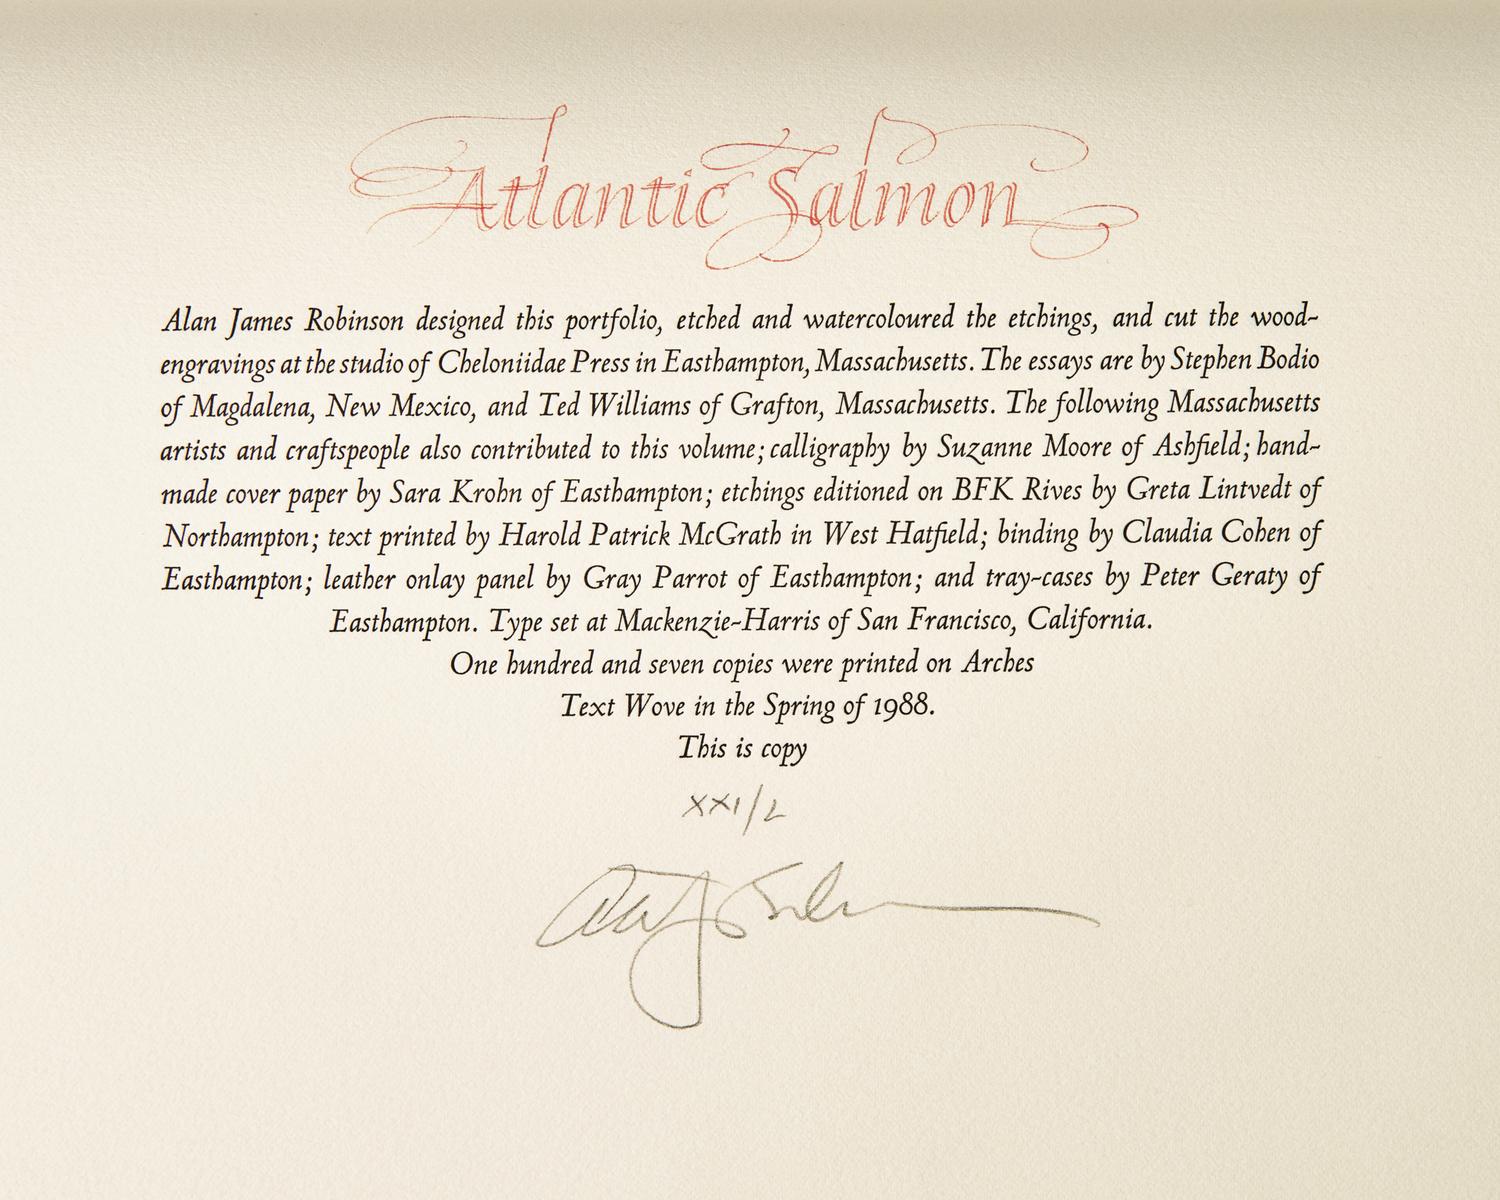 Atlantic Salmon
Alan James Robinson designed this portfolio, etched and watercoloured the etchings, and cut the wood-
engravings at the studio of Cheloniidae Press in Easthampton, Massachusetts. The essays are by Stephen Bodio
of Magdalena, New Mexico, and Ted Williams of Grafton, Massachusetts. The following Massachusetts
artists and craftspeople also contributed to this volume; calligraphy by Suzanne Moore of Ashfield; hand-
made cover paper by Sara Krohn of Easthampton; etchings editioned on BFK Rives by Greta Lintvedt of
Northampton; text printed by Harold Patrick McGrath in West Hatfield; binding by Claudia Cohen of
Easthampton; leather onlay panel by Gray Parrot of Easthampton; and tray-cases by Peter Geraty of
Easthampton. Type set at Mackenzie-Harris of San Francisco, California.
One hundred and seven copies were printed on Arches
Text Wove in the Spring of 1988.
This is copy
XXI/2